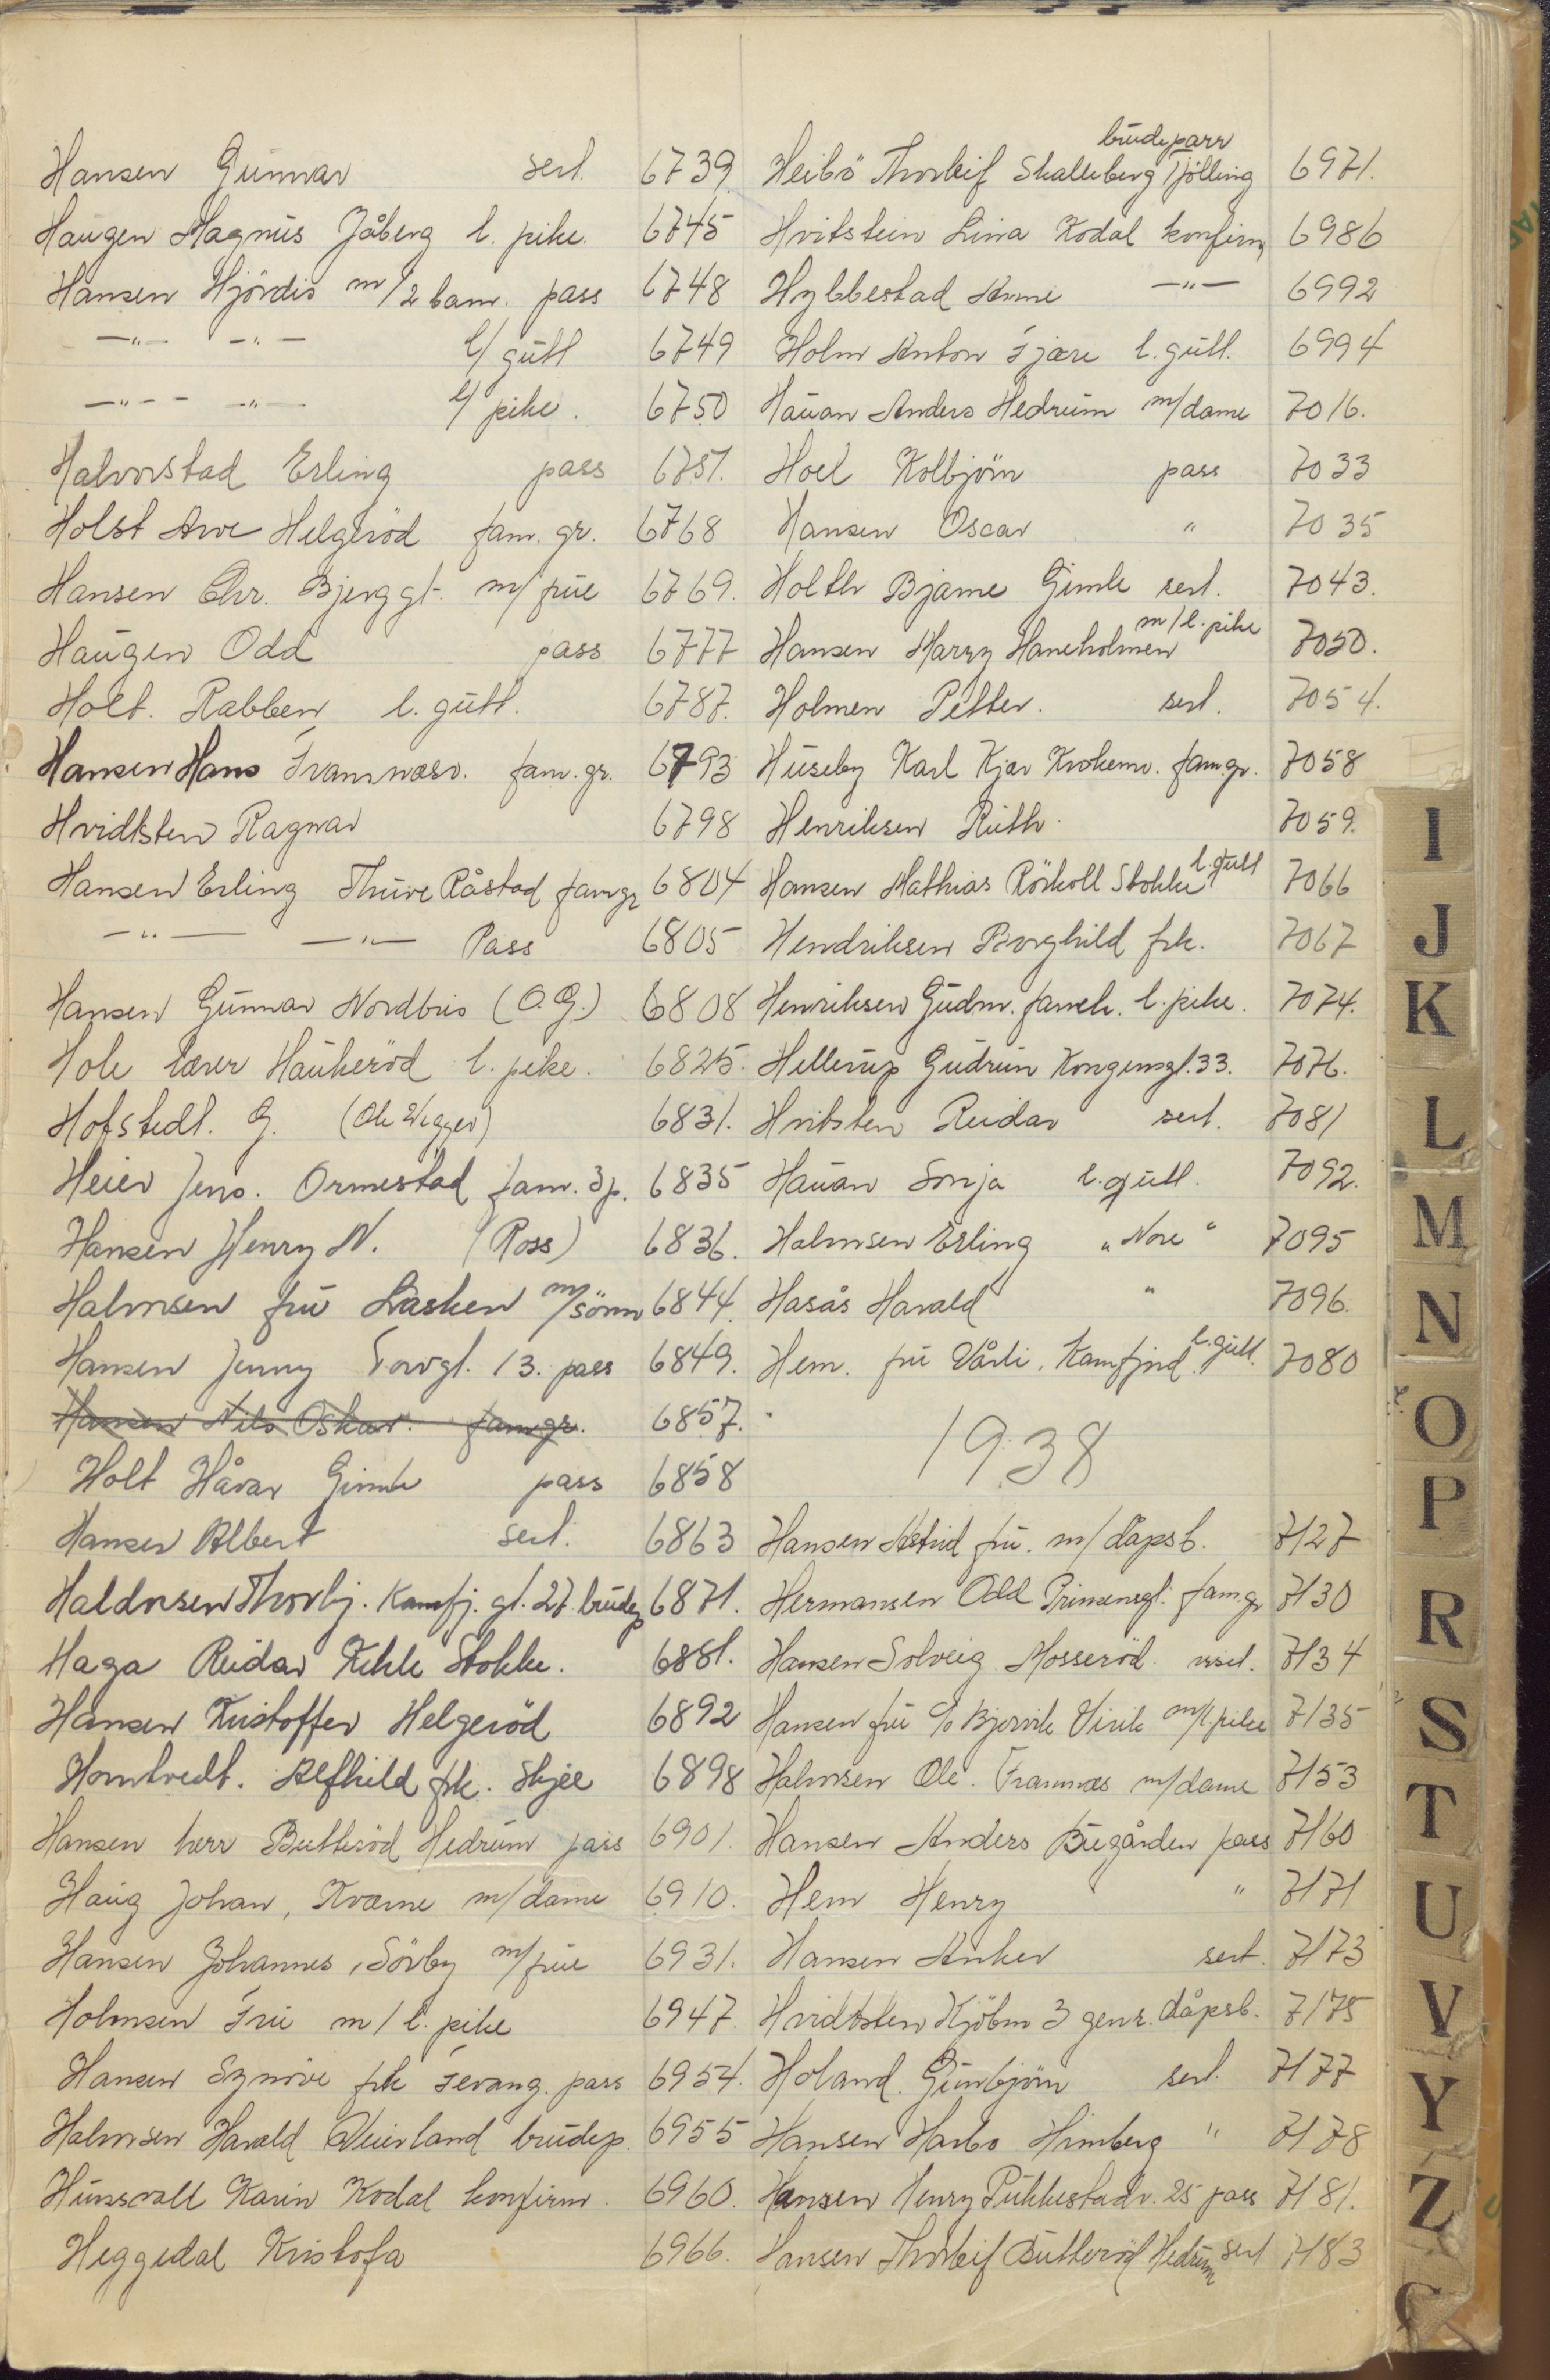 Hansen Gunnar serl. 6739
Haugen Magnus Jåberg l. pike. 6745
Hansen Hjördis m/2 barn. pass 6748
—"— —"— l/ gutt 6749
—"— —"— l/ pike. 6750
Halvorstad Erling pass 6751.
Holst Arve Helgeröd fam. gr. 6768
Hansen Chr. Bjerggt. m/ frue 6769.
Haugen Odd pass 6777
Holt. Rabben l. gutt. 6787.
Hansen Hans Framnæsv. fam. gr. 6793
Hvidtsten Ragnar 6798
Hansen Erling Thure Råstad famgr 6804
—"— —"— Pass 6805
Hansen Gunnar Nordbris (O.G.) 6808
Hole lærer Haukeröd l. pike. 6825.
Hofstedt. G. (Ole Wegger) 6831.
Heier Jens. Ormestad fam. 3p. 6835
Hansen Henry N. (Ross) 6836.
Halvorsen fru Lasken m/sönn 6844.
Hansen Jenny Torvgt. 13. pass 6849.
Hansen Nils Oskar. famgr. 6857.
Holt Håvar Gimle pass 6858
Hansen Albert serl. 6863
Haldorsen Thorbj. Kamfj. gt. 27 brudep 6871.
Haga Reidar Stokke. 6881.
Hansen Kristoffer Helgeröd 6892
Homtvedt. Alfhild frk. Skjee 6898
Hansen herr Butteröd Hedrum pass 6901.
Haug Johan, Kvarne m/dame 6910.
Hansen Johannes, Sörby m/frue 6931.
Holmsen Fru m/ l. pike 6947.
Hansen Synnöve frk Fevang. pass 6954.
Halvorsen Harald Veierland brudep. 6955
Hunsvall Karin Kodal konfirm. 6960.
Heggedal Kristofa 6966.
brudeparr
Heibö Thorleif Skalleberg Tjölling 6971.
Hvitstein Lina Kodal konfirm 6986
Hybbestad Arne —"— 6992
Holm Anton Fjære l. gutt. 6994
Hauan Anders Hedrum m/dame 7016.
Hoel Kolbjörn pass 7033
Hansen Oscar " 7035
Holth Bjarne Gimle serl. 7043.
Hansen Harry Haneholmen m/l. pike 7050.
Holmen Petter. serl. 7054.
Huseby Karl Kjær Krokemv. famgr. 7058
Henriksen Ruth. 7059.
Hansen Mathias Rörkoll Stokke l. gutt 7066
Hendriksen Borghild frk. 7067
Henriksen Gudm. l. pike. 7074.
Hellerup Gudrun Kongensgt. 33. 7076.
Hvitsten Reidar serl. 7081
Hauan Sonja l. gutt. 7092.
Halvorsen Erling "Nore" 7095
Hasås Harald " 7096.
Hem. fru Vårli. Kamfjord l. gutt. 7080
1938
Hansen Astrid fru. m/ dåpsb. 7127
Hermansen Odd Prinsensgt. famgr 7130
Hansen Solveig Mosseröd 7134
Hansen fru c/o Bjervik Virik m/l pike 7135
Halvorsen Ole. Framnæs m/dame 7153
Hansen Anders Bugården pass 7160
Hem Henry " 7171
Hansen Anker serl. 7173
Hvidtsten Kjöbm 3 gener. dåpsb. 7175
Holand. Gunbjörn serl. 7177
Hansen Harbo Himberg " 7178
Hansen Henry Pukkestadv. 25 pass 7181.
Hansen Thorleif Butteröd Hedrum serl 7183
I
J
K
L
M
N
O
P
R
S
T
U
V
Y
Z